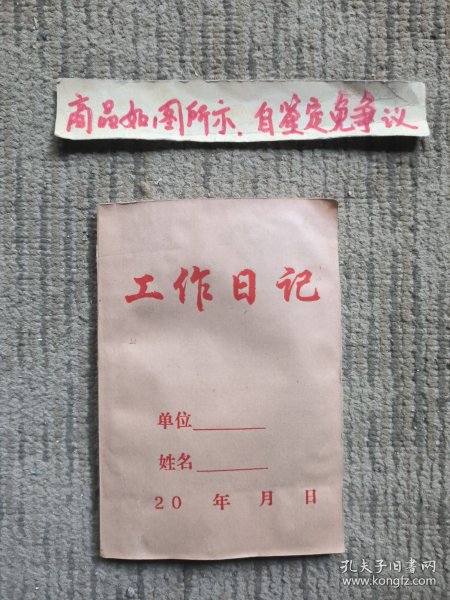 商品如图所示，自鉴定免争议
工作日记
单位
姓名
20 年 月 日
孔夫子旧书网
www.kongfz.com